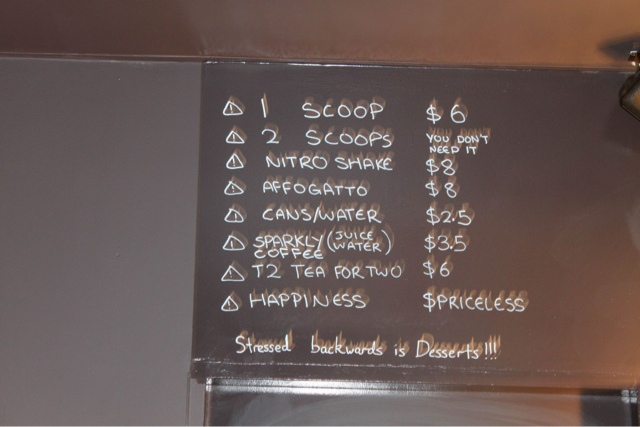 1 SCOOP $6
2 SCOOPS YOU DON'T NEED IT
NITRO SHAKE $8
AFFOGATTO $8
CANS/WATER $2.5
SPARKLY (JUICE WATER) $3.5
COFFEE
T2 TEA FOR TWO $6
HAPPINESS $PRICELESS
Stressed backwards is Desserts!!!